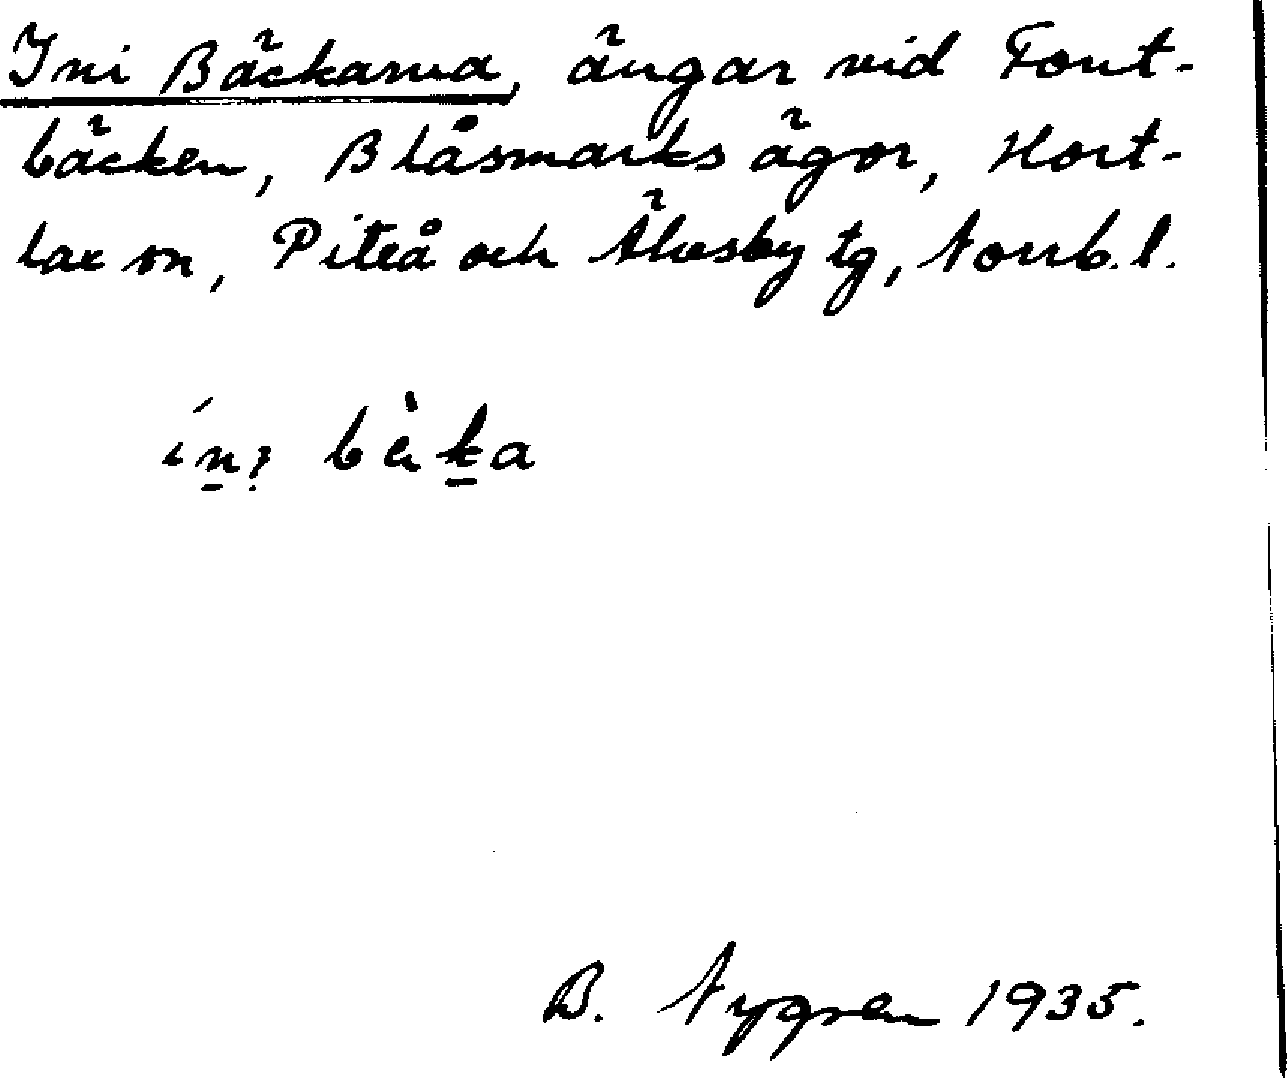 Ini Bäckarna, ängar vid Fort-
bäcken, Blåsmarks ägor, Hort-
lax sn, Piteå och Älvsby tg, Norrb. l.
B. Nygren 1935.